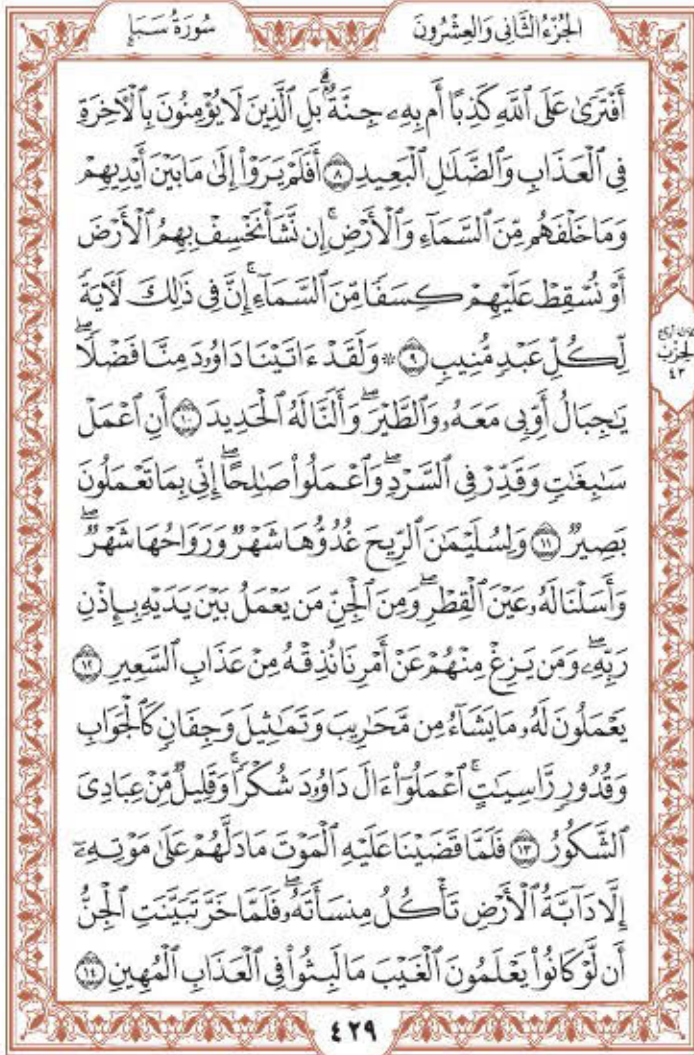 الجُزْءُ الثَّانِي وَالعِشْرُونَ
سُورَةُ سَبَإٍ
أَفْتَرَىٰ عَلَى ٱللَّهِ كَذِبًا أَم بِهِۦ جِنَّةُۢۗ بَلِ ٱلَّذِينَ لَا يُؤْمِنُونَ بِٱلْأٓخِرَةِ
فِي ٱلْعَذَابِ وَٱلضَّلَٰلِ ٱلْبَعِيدِ ٨ أَفَلَمْ يَرَوْا۟ إِلَىٰ مَا بَيْنَ أَيْدِيهِمْ
وَمَا خَلْفَهُم مِّنَ ٱلسَّمَآءِ وَٱلْأَرْضِۚ إِن نَّشَأْ نَخْسِفْ بِهِمُ ٱلْأَرْضَ
أَوْ نُسْقِطْ عَلَيْهِمْ كِسَفًا مِّنَ ٱلسَّمَآءِۚ إِنَّ فِي ذَٰلِكَ لَأٓيَةً
لِّكُلِّ عَبْدٍ مُّنِيبٍ ٩ ۞ وَلَقَدْ ءَاتَيْنَا دَاوُۥدَ مِنَّا فَضْلًاۖ
يَٰجِبَالُ أَوِّبِي مَعَهُۥ وَٱلطَّيْرَۖ وَأَلَنَّا لَهُ ٱلْحَدِيدَ ١٠ أَنِ ٱعْمَلْ
سَٰبِغَٰتٍ وَقَدِّرْ فِي ٱلسَّرْدِۖ وَٱعْمَلُوا۟ صَٰلِحًاۖ إِنِّي بِمَا تَعْمَلُونَ
بَصِيرٌ ١١ وَلِسُلَيْمَٰنَ ٱلرِّيحَ غُدُوُّهَا شَهْرٌ وَرَوَاحُهَا شَهْرٌۖ
وَأَسَلْنَا لَهُۥ عَيْنَ ٱلْقِطْرِۖ وَمِنَ ٱلْجِنِّ مَن يَعْمَلُ بَيْنَ يَدَيْهِ بِإِذْنِ
رَبِّهِۦۖ وَمَن يَزِغْ مِنْهُمْ عَنْ أَمْرِنَا نُذِقْهُ مِنْ عَذَابِ ٱلسَّعِيرِ ١٢
يَعْمَلُونَ لَهُۥ مَا يَشَآءُ مِن مَّحَٰرِيبَ وَتَمَٰثِيلَ وَجِفَانٍ كَٱلْجَوَابِ
وَقُدُورٍ رَّاسِيَٰتٍۚ ٱعْمَلُوٓا۟ ءَالَ دَاوُۥدَ شُكْرًاۚ وَقَلِيلٌ مِّنْ عِبَادِيَ
ٱلشَّكُورُ ١٣ فَلَمَّا قَضَيْنَا عَلَيْهِ ٱلْمَوْتَ مَا دَلَّهُمْ عَلَىٰ مَوْتِهِۦٓ
إِلَّا دَآبَّةُ ٱلْأَرْضِ تَأْكُلُ مِنسَأَتَهُۥۖ فَلَمَّا خَرَّ تَبَيَّنَتِ ٱلْجِنُّ
أَن لَّوْ كَانُوا۟ يَعْلَمُونَ ٱلْغَيْبَ مَا لَبِثُوا۟ فِي ٱلْعَذَابِ ٱلْمُهِينِ ١٤
الحِزْب
٤٣
٤٢٩